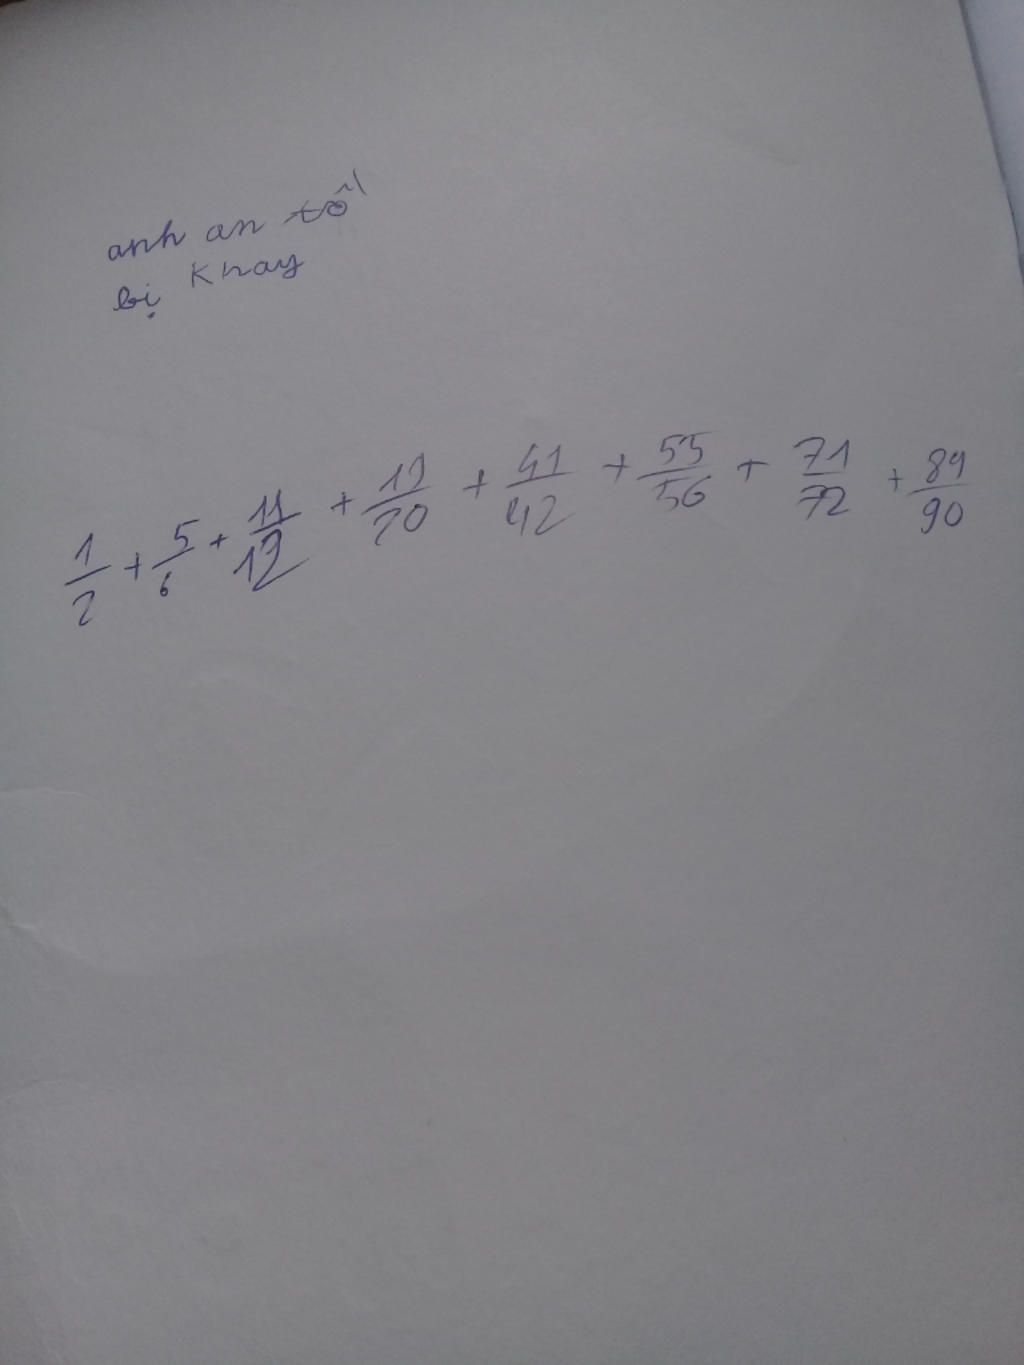 anh an tối
bị khay
1/2 + 5/6 + 11/12 + 19/20 + 41/42 + 55/56 + 71/72 + 89/90